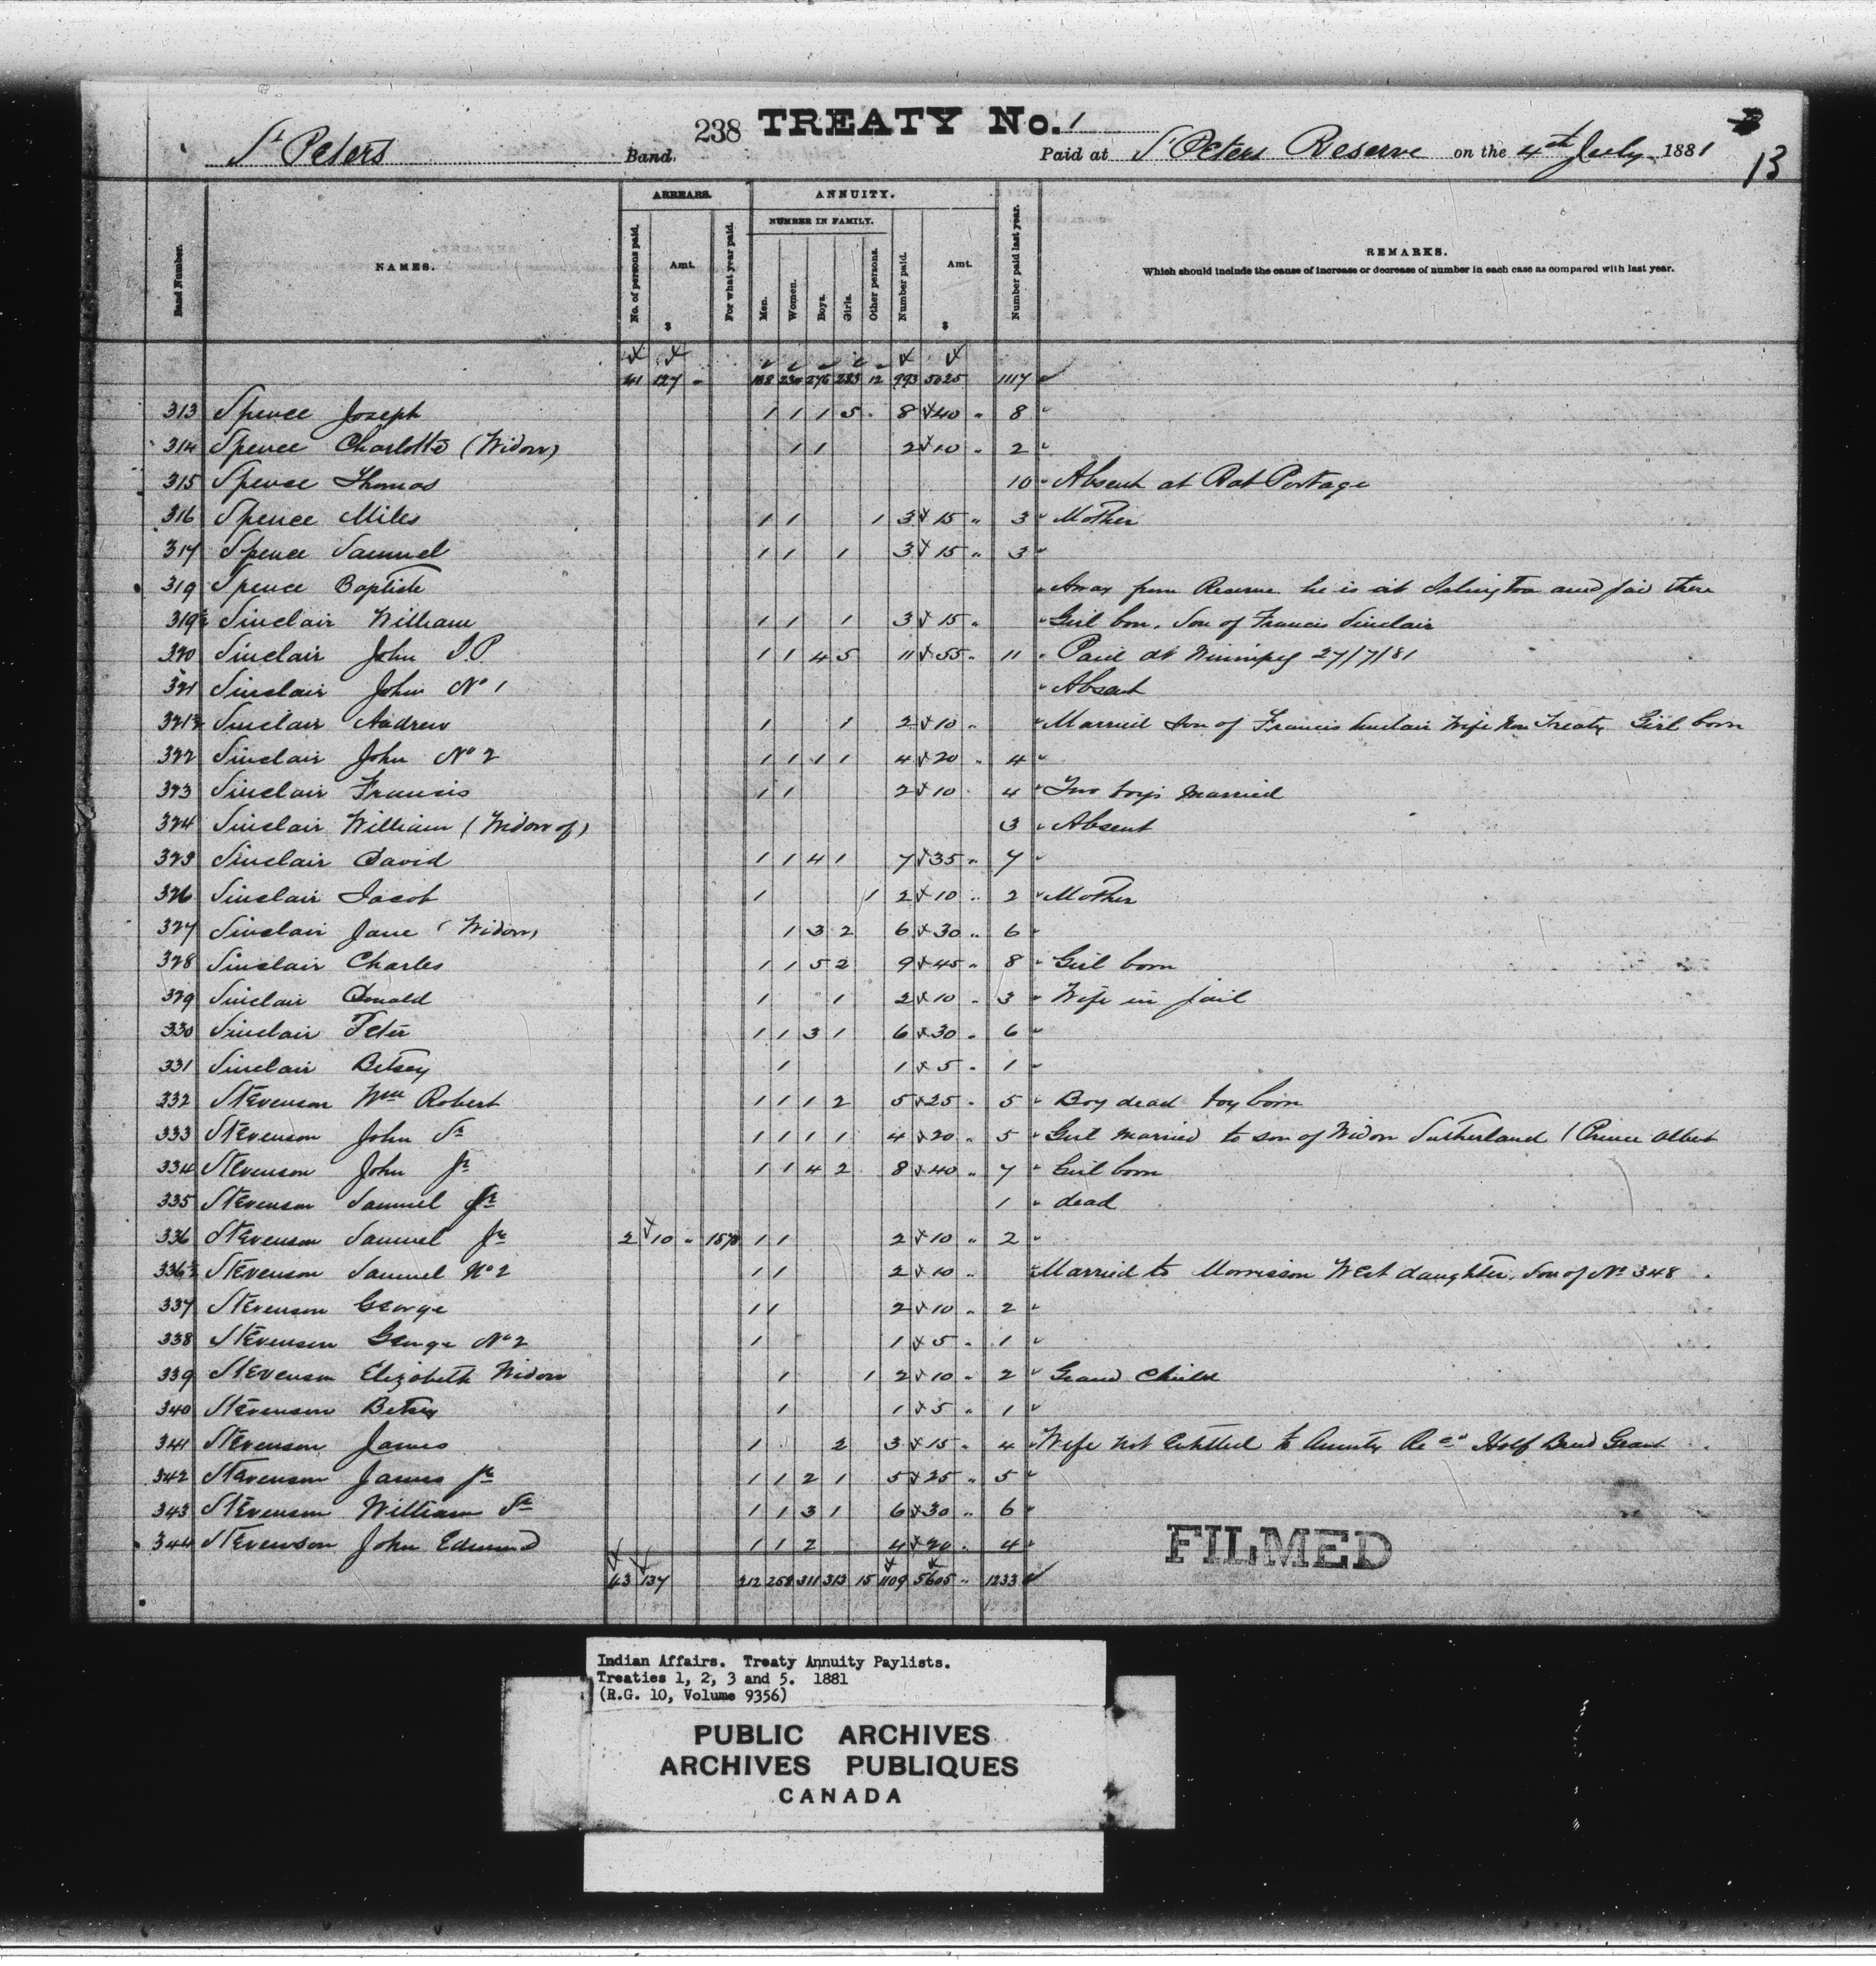 238 TREATY No. 1
13
St Peters Band. Paid at St Peters Reserve on the 4th July 1881
ARREARS. ANNUITY.
NUMBER IN FAMILY.
Band Number. NAMES. No. of persons paid. Amt. $ For what year paid. Men. Women. Boys. Girls. Other persons. Number paid. Amt. $ Number paid last year. REMARKS.
Which should include the cause of increase or decrease of number in each case as compared with last year.
127 12 993 5025 1117
313 Spence Joseph 1 1 1 5 8 40 " 8 "
314 Spence Charlotte (Widow) 1 1 2 10 " 2 "
315 Spence Thomas 10 " Absent at Rat Portage
316 Spence Miles 1 1 1 3 15 " 3 " Mother
317 Spence Samuel 1 1 1 3 15 " 3 "
319 Spence Baptiste " Away from Reserve he is at Islington and paid there
319½ Sinclair William 1 1 1 3 15 " " Girl born. Son of Francis Sinclair
320 Sinclair John 1 1 4 5 11 55 " 11 " Paid at Winnipeg 27/7/81
321 Sinclair John No 1 " Absent
321½ Sinclair Andrew 1 1 2 10 " " Married Son of Francis Sinclair Wife Non Treaty Girl born
322 Sinclair John No 2 1 1 1 1 4 20 " 4 "
323 Sinclair Francis 1 1 2 10 " 4 " Two boys married
324 Sinclair William (Widow of) 3 " Absent
325 Sinclair David 1 1 4 1 7 35 " 7 "
326 Sinclair Jacob 1 1 2 10 " 2 " Mother
327 Sinclair Jane (Widow) 1 3 2 6 30 " 6 "
328 Sinclair Charles 1 1 5 2 9 45 " 8 " Girl born
329 Sinclair Donald 1 1 2 10 " 3 " Wife in jail
330 Sinclair Peter 1 1 3 1 6 30 " 6 "
331 Sinclair Betsey 1 1 5 " 1 "
332 Stevenson Wm Robert 1 1 1 2 5 25 " 5 " Boy dead boy born
333 Stevenson John Sr 1 1 1 1 4 20 " 5 " Girl married to son of Widow Sutherland (Prince Albert
334 Stevenson John Jr 1 1 4 2 8 40 " 7 " Girl born
335 Stevenson Samuel Sr 1 " dead
336 Stevenson Samuel Jr 2 10 " 1 1 2 10 " 2 "
336½ Stevenson Samuel No 2 1 1 2 10 " " Married to Morrison West daughter. Son of No 348
337 Stevenson George 1 1 2 10 " 2 "
338 Stevenson George No 2 1 1 5 " 1 "
339 Stevenson Elizabeth Widow 1 1 2 10 " 2 " Grand Child
340 Stevenson Betsey 1 1 5 " 1 "
341 Stevenson James 1 2 3 15 " 4 " Wife not Entitled to Annuity Recd Half Breed Grant
342 Stevenson James Jr 1 1 2 1 5 25 " 5 "
343 Stevenson William Sr 1 1 3 1 6 30 " 6 "
344 Stevenson John Edmund 1 1 2 4 20 " 4 "
FILMED
43 137 212 258 311 313 15 1109 5605 " 1233
Indian Affairs. Treaty Annuity Paylists.
Treaties 1, 2, 3 and 5. 1881
(R.G. 10, Volume 9356)
PUBLIC ARCHIVES
ARCHIVES PUBLIQUES
CANADA